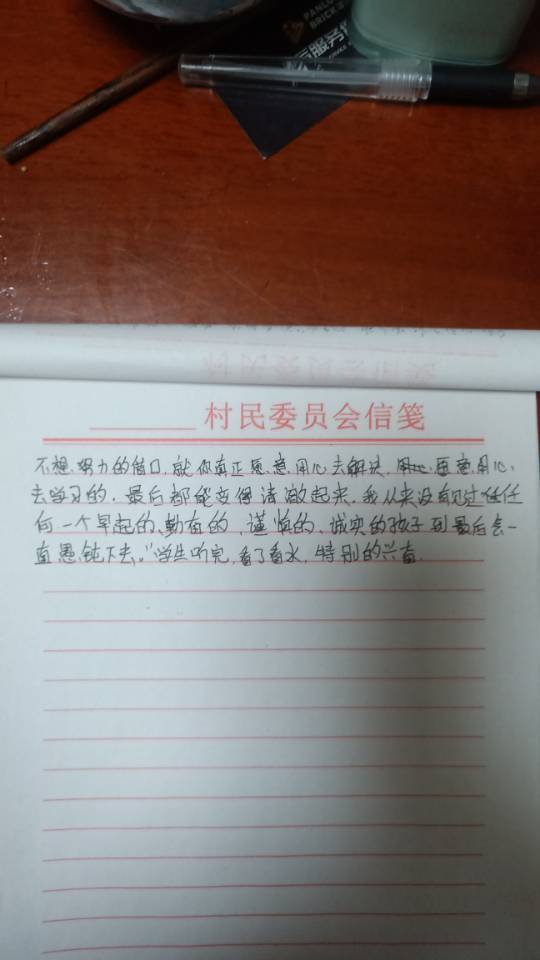 PANLU
BRICK
服务
村民委员会信笺
不想努力的借口，就你真正愿意用心去解决，愿意用心
去学习的，最后都能变得清澈起来，我从来没有见过任任
何一个早起的、勤奋的、谨慎的、诚实的孩子到最后会一
直愚钝下去。"学生听完，看了看水，特别的兴奋